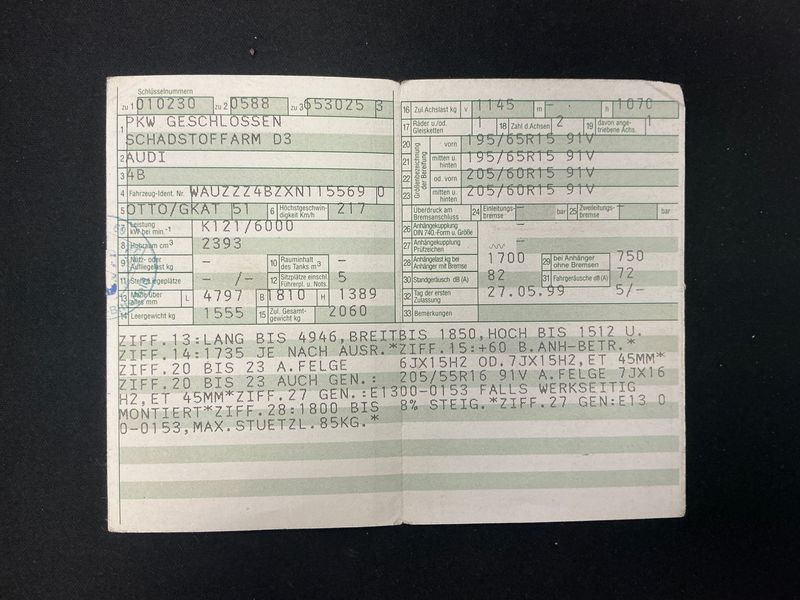 Schlüsselnummern
zu 1 010230 zu 2 0588 zu 3 653025 3
1 PKW GESCHLOSSEN
SCHADSTOFFARM D3
2 AUDI
3 4B
4 Fahrzeug-Ident. Nr. WAUZZZ4BZXN115569 0
5 OTTO/GKAT 51 6 Höchstgeschwindigkeit km/h 217
7 Leistung kW bei min.-1 K121/6000
8 Hubraum cm³ 2393
9 Nutz- oder Aufliegelast kg - 10 Rauminhalt des Tanks m³ -
11 Steh-/Liegeplätze - /- 12 Sitzplätze einschl. Führerpl. u. Nots. 5
13 Maße über alles mm L 4797 B 1810 H 1389
14 Leergewicht kg 1555 15 Zul. Gesamtgewicht kg 2060
16 Zul. Achslast kg v 1145 m - h 1070
17 Räder u./od. Gleisketten 1 18 Zahl d. Achsen 2 19 davon angetriebene Achs. 1
Größenbezeichnung der Bereifung
20 vorn 195/65R15 91V
21 mitten u. hinten 195/65R15 91V
22 od. vorn 205/60R15 91V
23 mitten u. hinten 205/60R15 91V
Überdruck am Bremsanschluss 24 Einleitungsbremse - bar 25 Zweileitungsbremse - bar
26 Anhängekupplung DIN 740.-Form u. Größe -
27 Anhängekupplung Prüfzeichen -
28 Anhängelast kg bei Anhänger mit Bremse 1700 29 bei Anhänger ohne Bremsen 750
30 Standgeräusch dB (A) 82 31 Fahrgeräusche dB (A) 72
32 Tag der ersten Zulassung 27.05.99 5/-
33 Bemerkungen
ZIFF.13:LANG BIS 4946,BREITBIS 1850,HOCH BIS 1512 U.
ZIFF.14:1735 JE NACH AUSR.*ZIFF.15:+60 B.ANH-BETR.*
ZIFF.20 BIS 23 A.FELGE 6JX15H2 OD.7JX15H2,ET 45MM*
ZIFF.20 BIS 23 AUCH GEN.: 205/55R16 91V A.FELGE 7JX16
H2,ET 45MM*ZIFF.27 GEN.:E1300-0153 FALLS WERKSEITIG
MONTIERT*ZIFF.28:1800 BIS 8% STEIG.*ZIFF.27 GEN:E13 0
0-0153,MAX.STUETZL.85KG.*